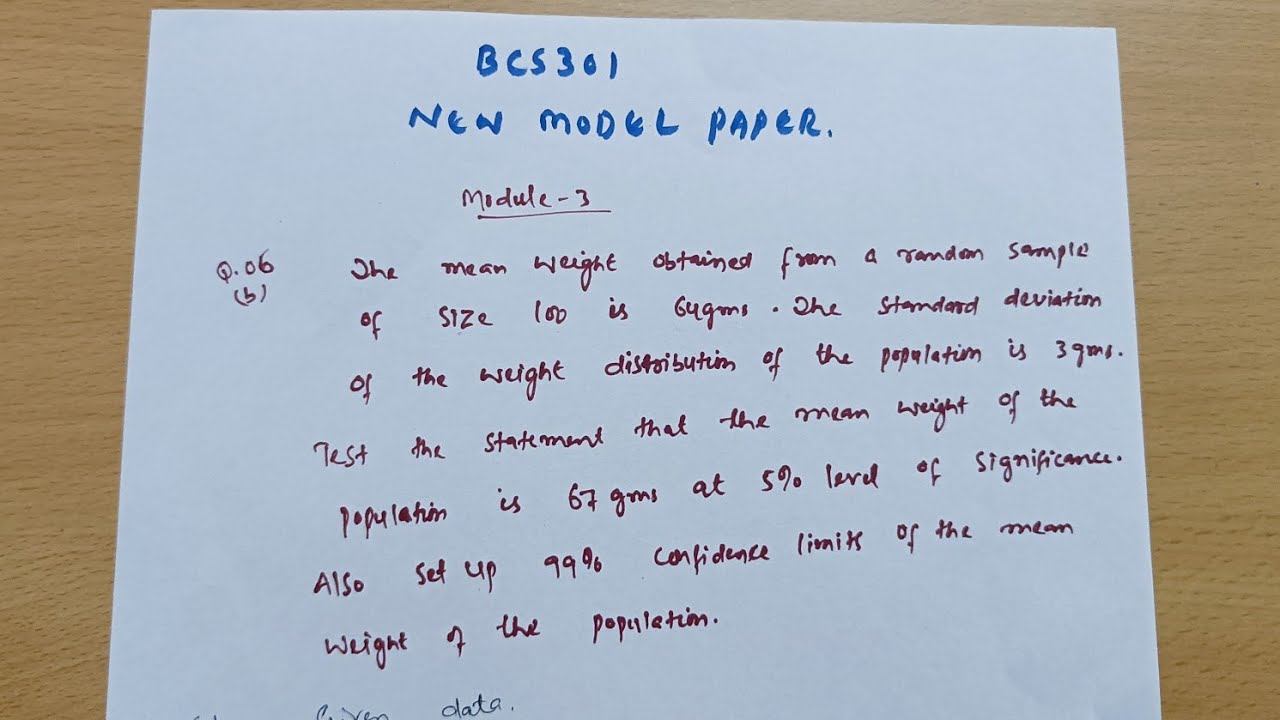 BCS301
NEW MODEL PAPER.
Module-3
Q.06 The mean weight obtained from a random sample
(b) of size 100 is 64gms. The standard deviation
of the weight distribution of the population is 3gms.
Test the statement that the mean weight of the
population is 67 gms at 5% level of significance.
Also set up 99% confidence limits of the mean
weight of the population.
Given data.